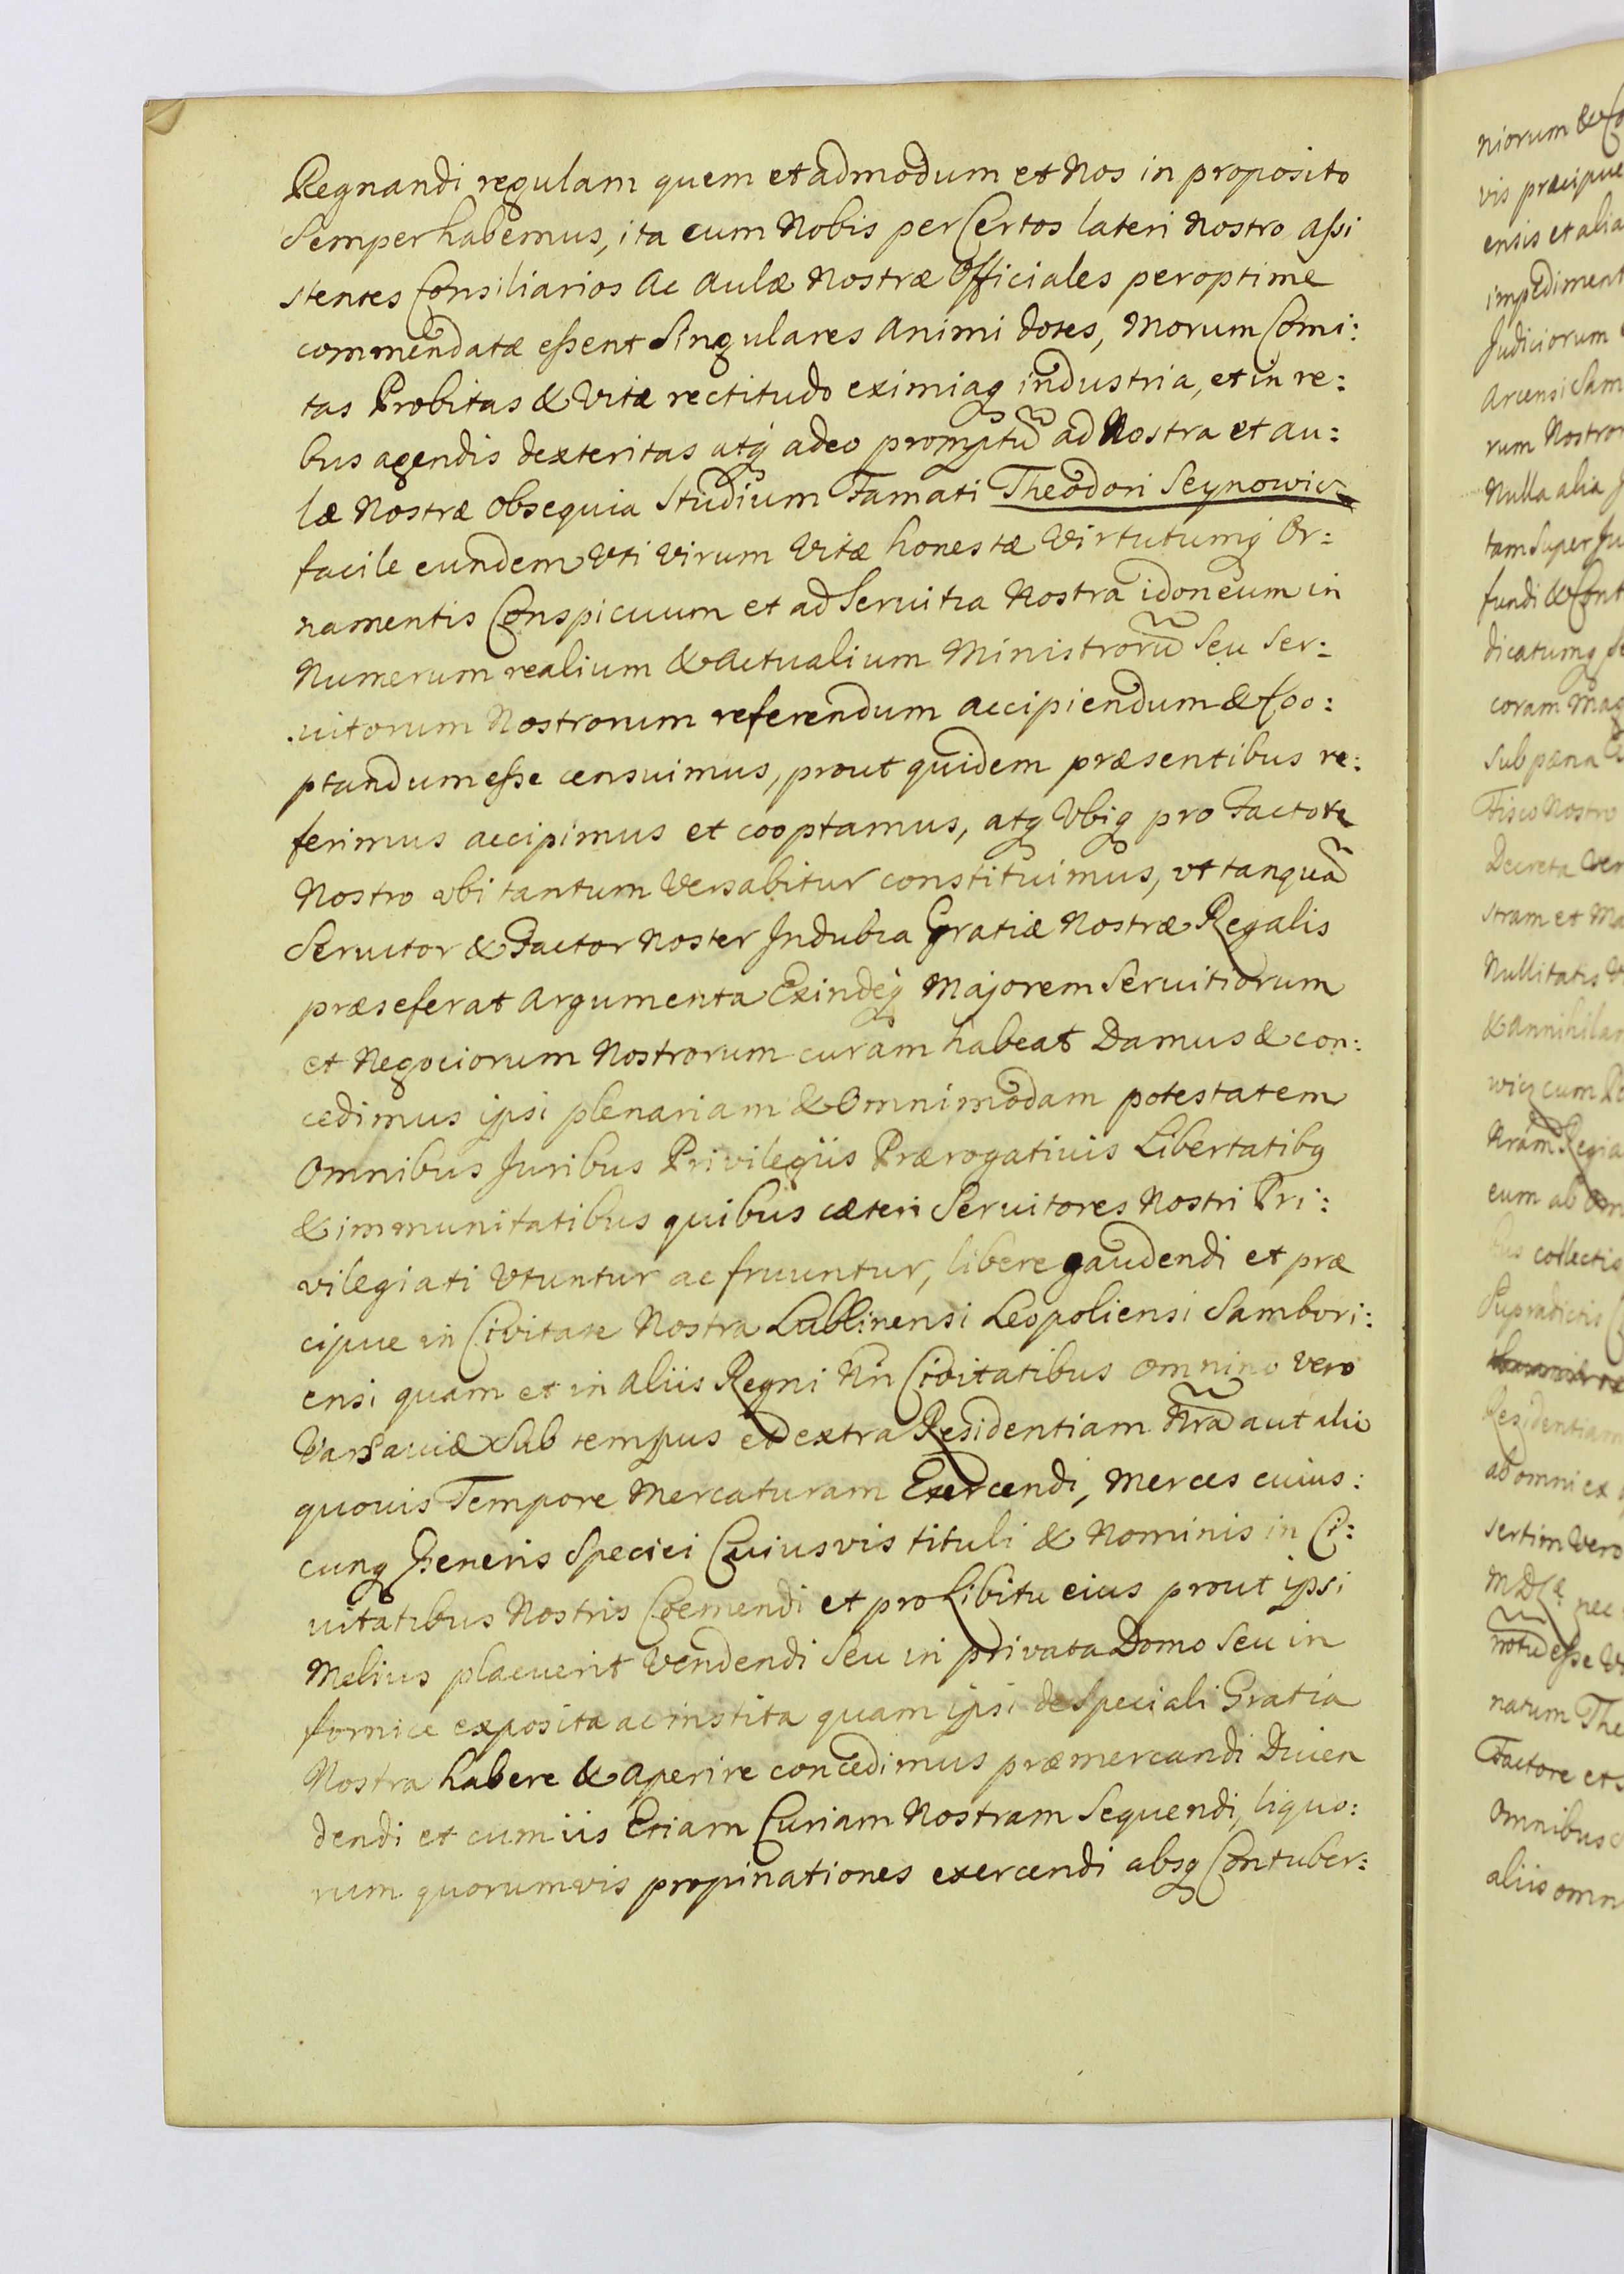 Regnandi regulam quem et admodum et Nos in proposito
Semper habemus, ita cum Nobis per Certos lateri Nostro assi
stentes Consiliarios Ac Aulæ Nostræ Officiales per optime
commendatæ essent Singulares Animi dotes, Morum Comi:
tas Probitas & Vitæ rectitudo eximiaq industria, et in re:
bus agendis dexteritas atq adeo promptũ ad Nostra et au:
læ Nostræ Obsequia Studium Famati Theodori Seynowicz
facile eundem Vti Virum Vitæ honestæ Virtutumq Or:
namentis Conspicuum et ad Seruitia Nostra idoneum in
Numerum realium & Actualium Ministrorũ Seu Ser:
uitorum Nostrorum referendum accipiendum & Coo:
ptandum esse censuimus, prout quidem præsentibus re:
ferimus accipimus et cooptamus, atq Vbiq pro Factore
Nostro vbi tantum Versabitur constituimus, vt tanquã
Seruitor & Factor Noster Indubia Gratiæ Nostræ Regalis
præseferat Argumenta Exindeq Majorem Seruitiorum
et Negociorum Nostrorum curam habeat Damus & con:
cedimus ipsi plenariam & Omnimodam potestatem
Omnibus Juribus Privilegiis Prærogativis Libertatibq
& immunitatibus quibus cæteri Seruitores Nostri Pri:
vilegiati Vtuntur ac fruuntur, libere gaudendi et præ
cipue in Civitate Nostra Lublinensi Leopoliensi Sambori:
ensi quam et in Aliis Regni Nri Civitatibus omnino Vero
Varsaviæ Sub tempus et extra Residentiam Nrã aut alio
quovis Tempore Mercaturam Exercendi, Merces cuius:
cunq Generis Speciei Cuiusvis tituli & Nominis in Ci:
uitatibus Nostris Coemendi et pro Libitu eius prout ipsi
Melius placuerit Vendendi Seu in privata Domo Seu in
fornice exposita ac instita quam ipsi de Speciali Gratia
Nostra habere & Aperire concedimus præmercandi Diven
dendi et cum iis Etiam Curiam Nostram Sequendi, liquo:
rum quorumvis propinationes exercendi absq Contuber: